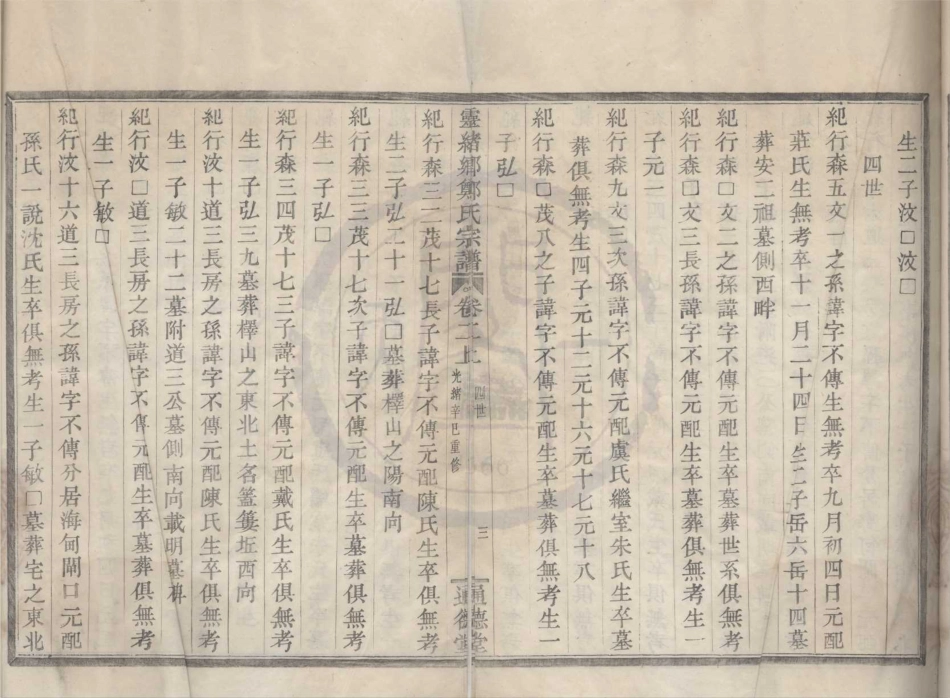 生二子汶□汶□
四世
紀行森五文一之孫諱字不傳生無考卒九月初四日元配
莊氏生無考卒十一月二十四日生二子岳六岳十四墓
葬安二祖墓側西畔
紀行森□文二之孫諱字不傳元配生卒墓葬世系俱無考
紀行森□文三長孫諱字不傳元配生卒墓葬俱無考生一
子元一
紀行森九文三次孫諱字不傳元配虞氏繼室朱氏生卒墓
葬俱無考生四子元十二元十六元十七元十八
紀行森□茂八之子諱字不傳元配生卒墓葬俱無考生一
子弘□
靈緒鄉鄭氏宗譜 卷二上 四世 光緒辛巳重修 三 通德堂
紀行森三二茂十七長子諱字不傳元配陳氏生卒俱無考
生二子弘二十一弘□墓葬檡山之陽南向
紀行森三三茂十七次子諱字不傳元配生卒墓葬俱無考
生一子弘□
紀行森三四茂十七三子諱字不傳元配戴氏生卒俱無考
生一子弘三九墓葬檡山之東北土名簉坵西向
紀行汶十道三長房之孫諱字不傳元配陳氏生卒俱無考
生一子敏二十二墓附道三公墓側南向載明墓碑
紀行汶□道三長房之孫諱字不傳元配生卒墓葬俱無考
生一子敏□
紀行汶十六道三長房之孫諱字不傳分居海甸閘口元配
孫氏一說沈氏生卒俱無考生一子敏□墓葬宅之東北